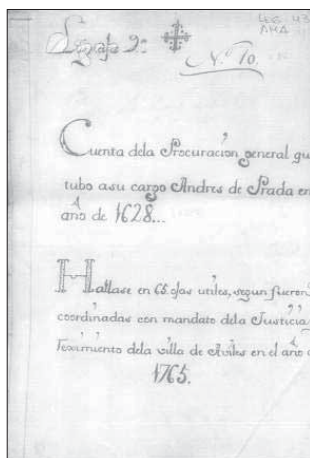 LEG. 43
AHA
Legajo 9.º
N.º 10.
Cuenta dela Procuracion general qu
tubo asu cargo Andres de Prada en
año de 1628...
Hallase en 65. ojas utiles, segun fueron
coordinadas con mandato dela Justicia
Reximiento dela villa de Aviles en el año
1765.